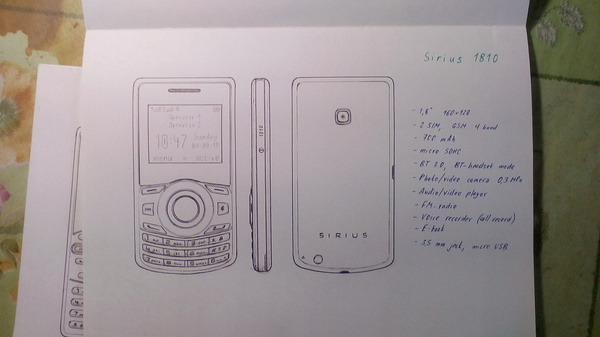 Sirius 1810
Operator 1
Operator 2
10:47 Sunday
menu
1810
SIRIUS
- 1,8" 160x128
- 2 SIM, GSM 4 band
- 700 mAh
- micro SDHC
- BT 2.0, BT-headset mode
- Photo/video camera 0,3 MPx
- Audio/video player
- FM-radio
- Voice recorder (call record)
- E-book
- 3.5 mm jack, micro USB